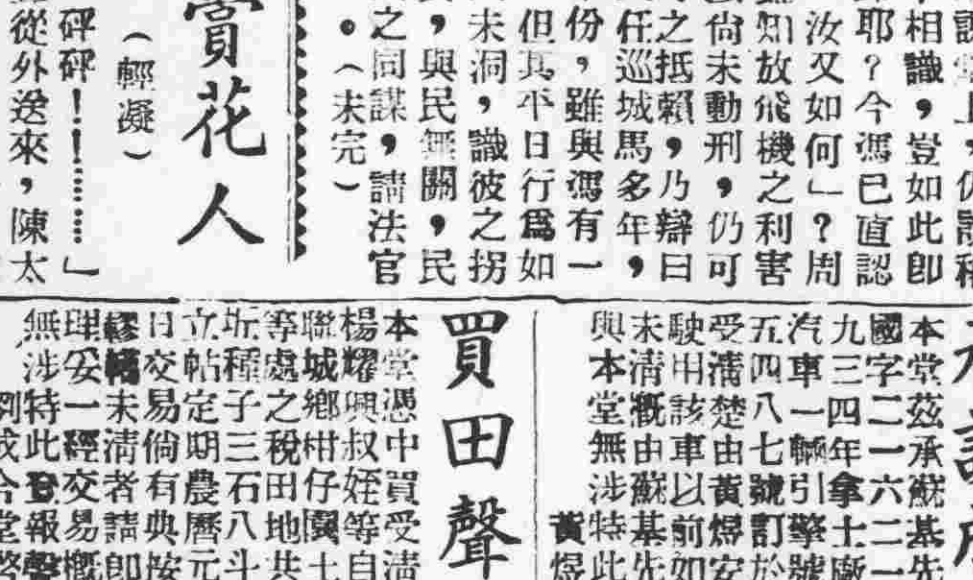 相識,豈如此卽
耶?今馮已直認
汝又如何」?周
知放飛機之利害
尙未動刑,仍可
之抵賴,乃辯曰
任巡城馬多年,
份,雖與馮有一
但其平日行爲如
未洞,識彼之拐
,與民無關,民
之同謀,請法官
。(未完)
賞花人
(輕凝)
砰砰!!………」
從外送來,陳太
本堂茲承蘇基先
國字二一六二一
九三四年拿士廠
汽車一輛引擎號
五四八七號訂於
受淸楚由黃煜安
駛出該車以前如
未淸概由蘇基先
與本堂無涉特此
黃煜
買田聲
本堂憑中買受淸
楊耀興叔姪等自
聯城鄉柑仔園土
等處之稅田地共
坵種子三石八斗
立帖定期農曆元
日交易倘有典按
轇轕未淸者請卽
理妥一經交易概
無涉特此登報聲